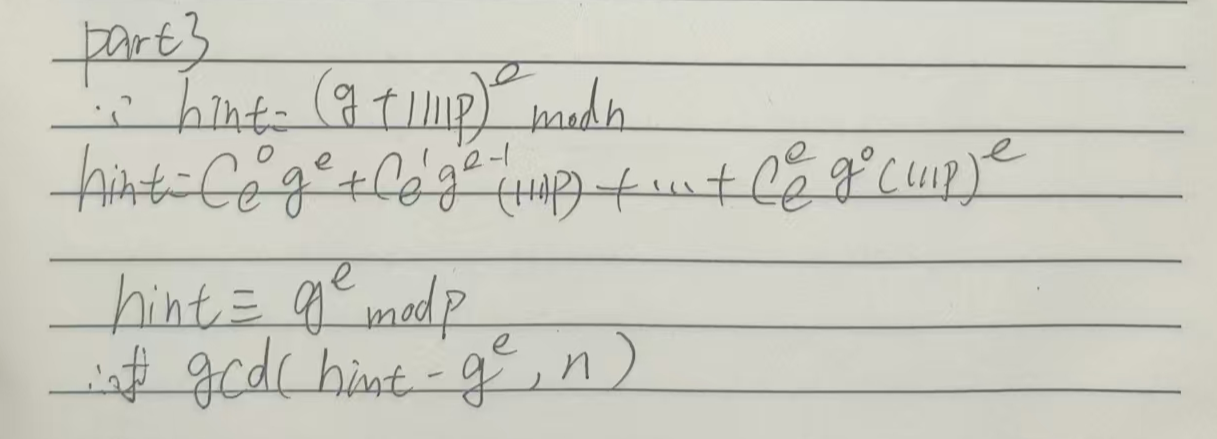 part3
∵ hint=(g+1111p)^e mod n
hint=C_e^0 g^e+C_e^1 g^{e-1}(1111p)+...+C_e^e g^0(1111p)^e
hint≡g^e mod p
∴求 gcd(hint-g^e,n)